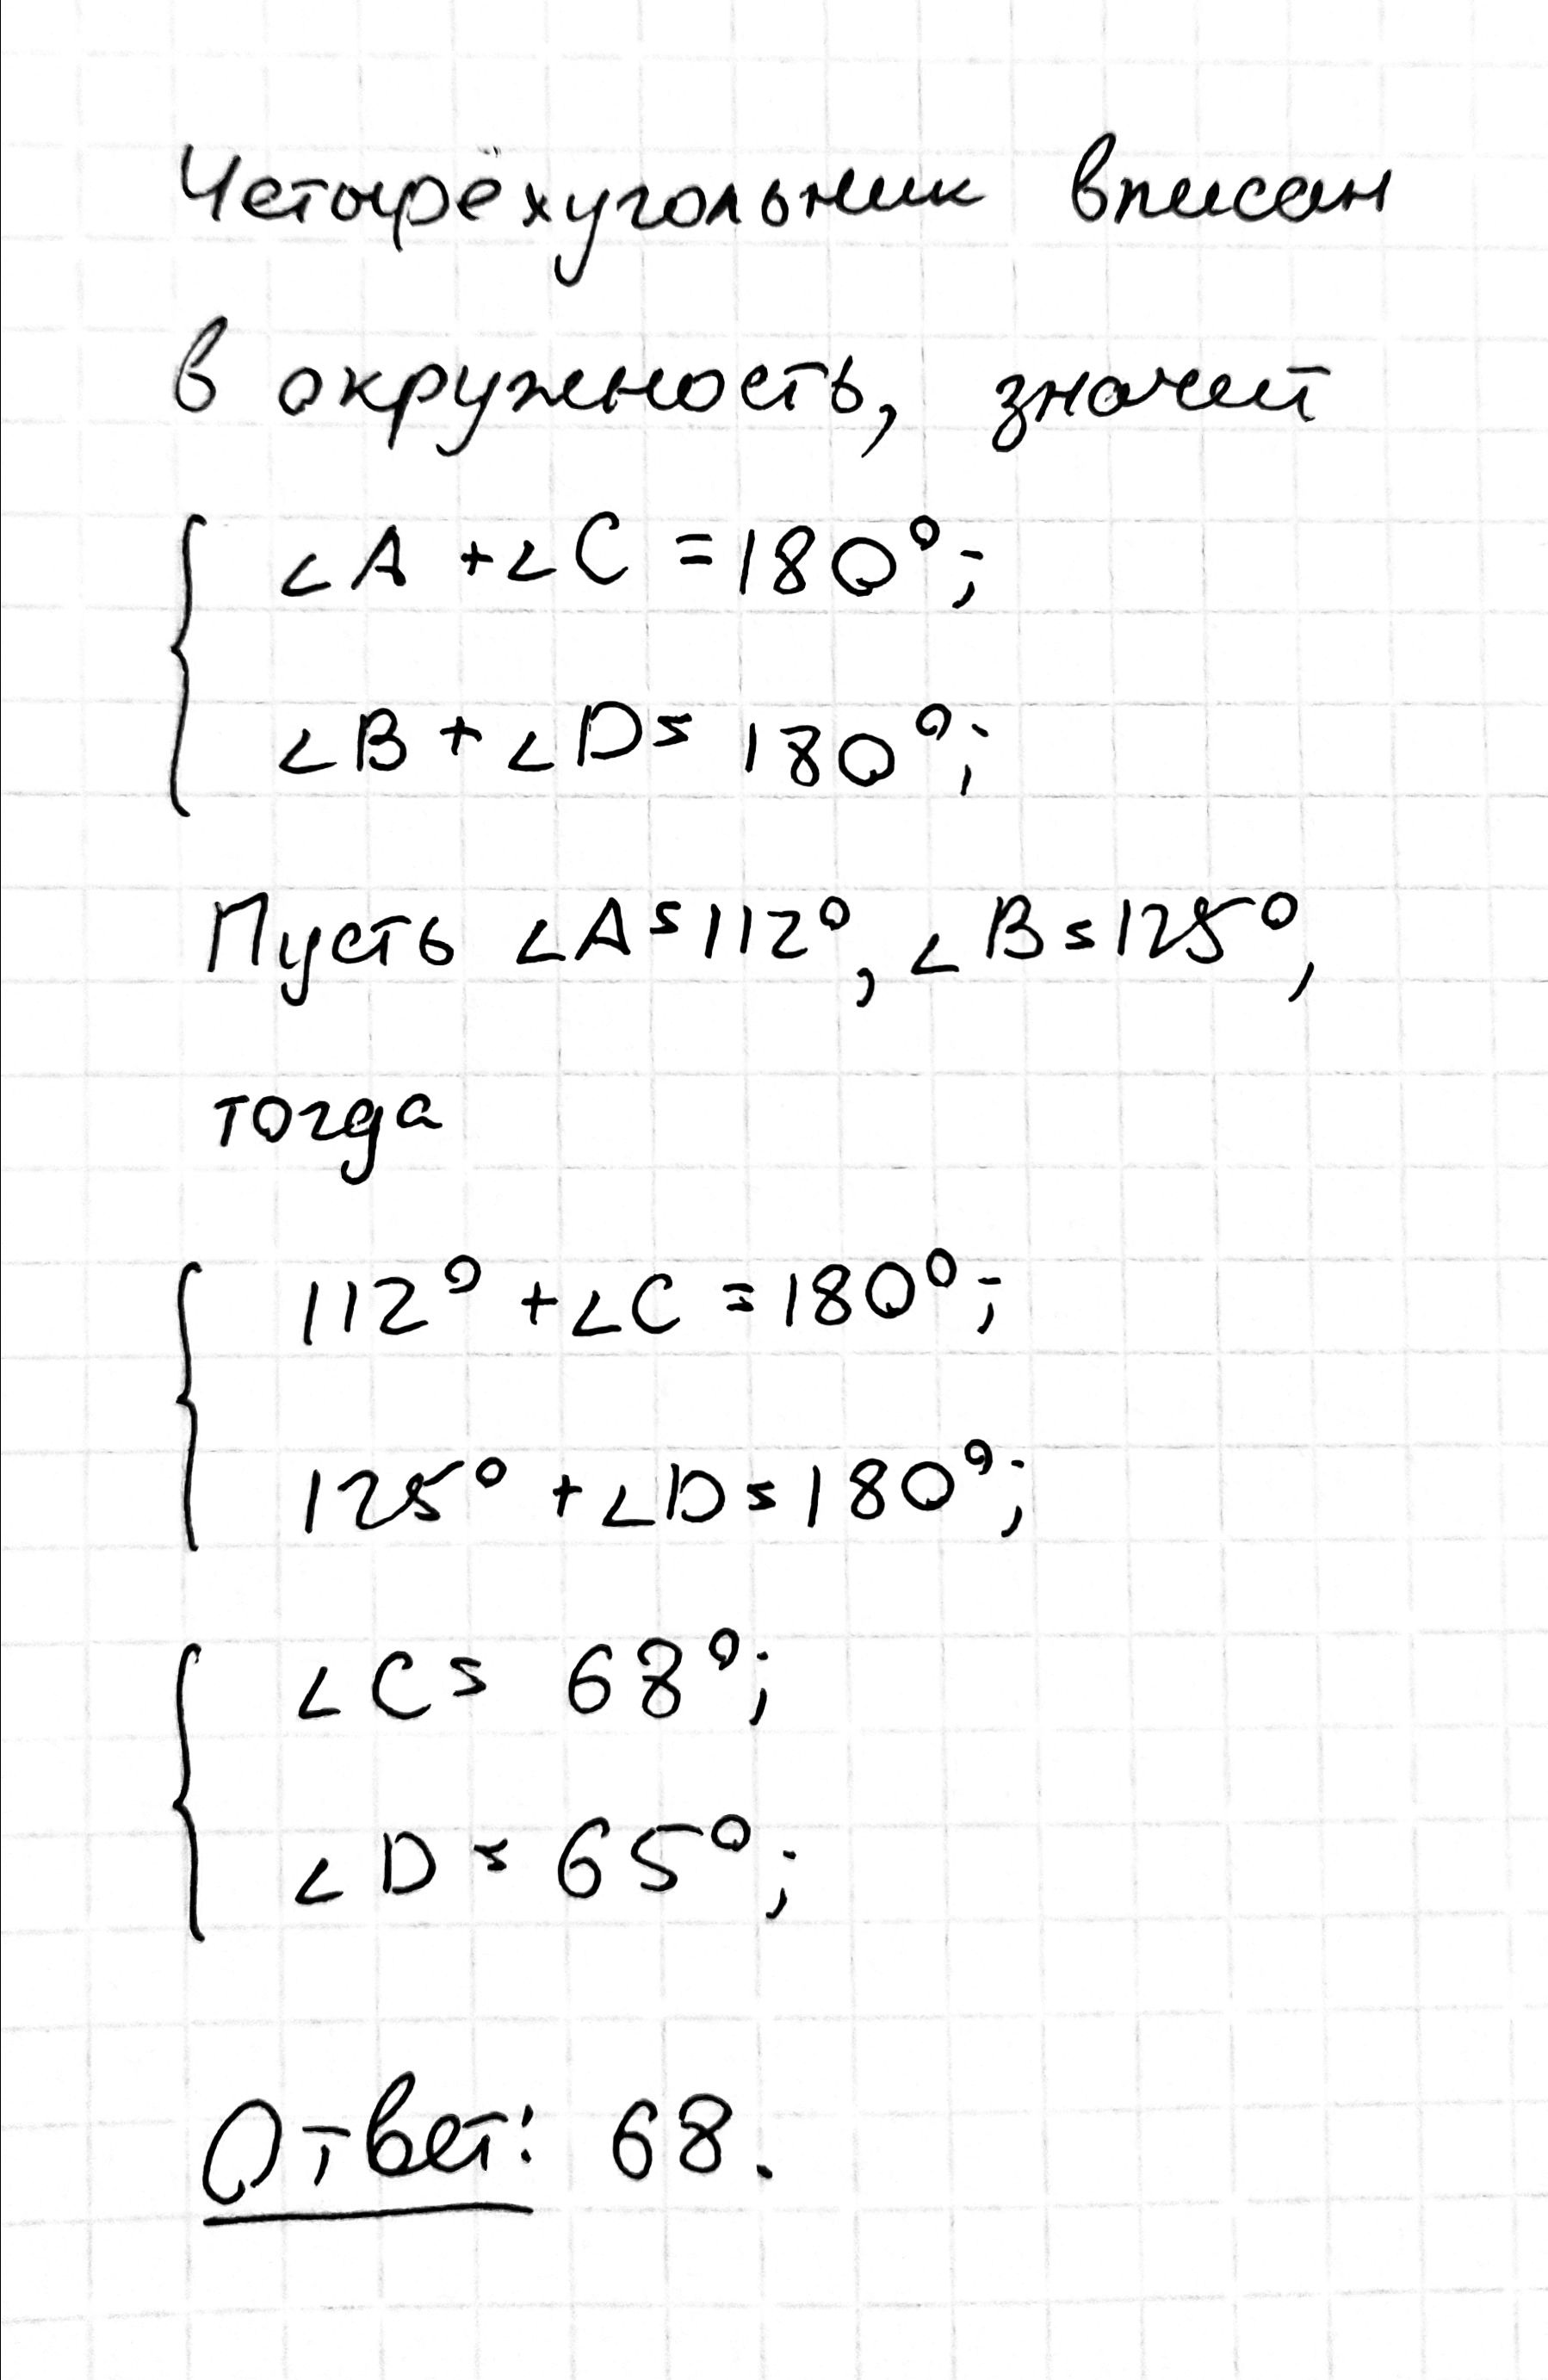 Четырёхугольник вписан
в окружность, значит
∠A + ∠C = 180°;
∠B + ∠D = 180°;
Пусть ∠A = 112°, ∠B = 125°,
тогда
112° + ∠C = 180°;
125° + ∠D = 180°;
∠C = 68°;
∠D = 65°;
Ответ: 68.